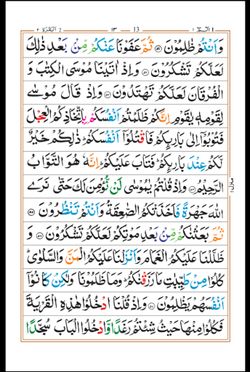 البقرة ٢ ١٣ 13 الٓمّٓ ١
وَاَنْتُمْ ظٰلِمُوْنَ ۝ ثُمَّ عَفَوْنَا عَنْكُمْ مِّنْۢ بَعْدِ ذٰلِكَ
لَعَلَّكُمْ تَشْكُرُوْنَ ۝ وَاِذْ اٰتَيْنَا مُوْسَى الْكِتٰبَ وَ
الْفُرْقَانَ لَعَلَّكُمْ تَهْتَدُوْنَ ۝ وَاِذْ قَالَ مُوْسٰى
لِقَوْمِهٖ يٰقَوْمِ اِنَّكُمْ ظَلَمْتُمْ اَنْفُسَكُمْ بِاتِّخَاذِكُمُ الْعِجْلَ
فَتُوْبُوْٓا اِلٰى بَارِئِكُمْ فَاقْتُلُوْٓا اَنْفُسَكُمْ ذٰلِكُمْ خَيْرٌ
لَّكُمْ عِنْدَ بَارِئِكُمْ فَتَابَ عَلَيْكُمْ اِنَّهٗ هُوَ التَّوَّابُ
الرَّحِيْمُ ۝ وَاِذْ قُلْتُمْ يٰمُوْسٰى لَنْ نُّؤْمِنَ لَكَ حَتّٰى نَرَى
اللّٰهَ جَهْرَةً فَاَخَذَتْكُمُ الصّٰعِقَةُ وَاَنْتُمْ تَنْظُرُوْنَ ۝
ثُمَّ بَعَثْنٰكُمْ مِّنْۢ بَعْدِ مَوْتِكُمْ لَعَلَّكُمْ تَشْكُرُوْنَ ۝ وَ
ظَلَّلْنَا عَلَيْكُمُ الْغَمَامَ وَاَنْزَلْنَا عَلَيْكُمُ الْمَنَّ وَالسَّلْوٰى
كُلُوْا مِنْ طَيِّبٰتِ مَا رَزَقْنٰكُمْ وَمَا ظَلَمُوْنَا وَلٰكِنْ كَانُوْٓا
اَنْفُسَهُمْ يَظْلِمُوْنَ ۝ وَاِذْ قُلْنَا ادْخُلُوْا هٰذِهِ الْقَرْيَةَ
فَكُلُوْا مِنْهَا حَيْثُ شِئْتُمْ رَغَدًا وَّادْخُلُوا الْبَابَ سُجَّدًا